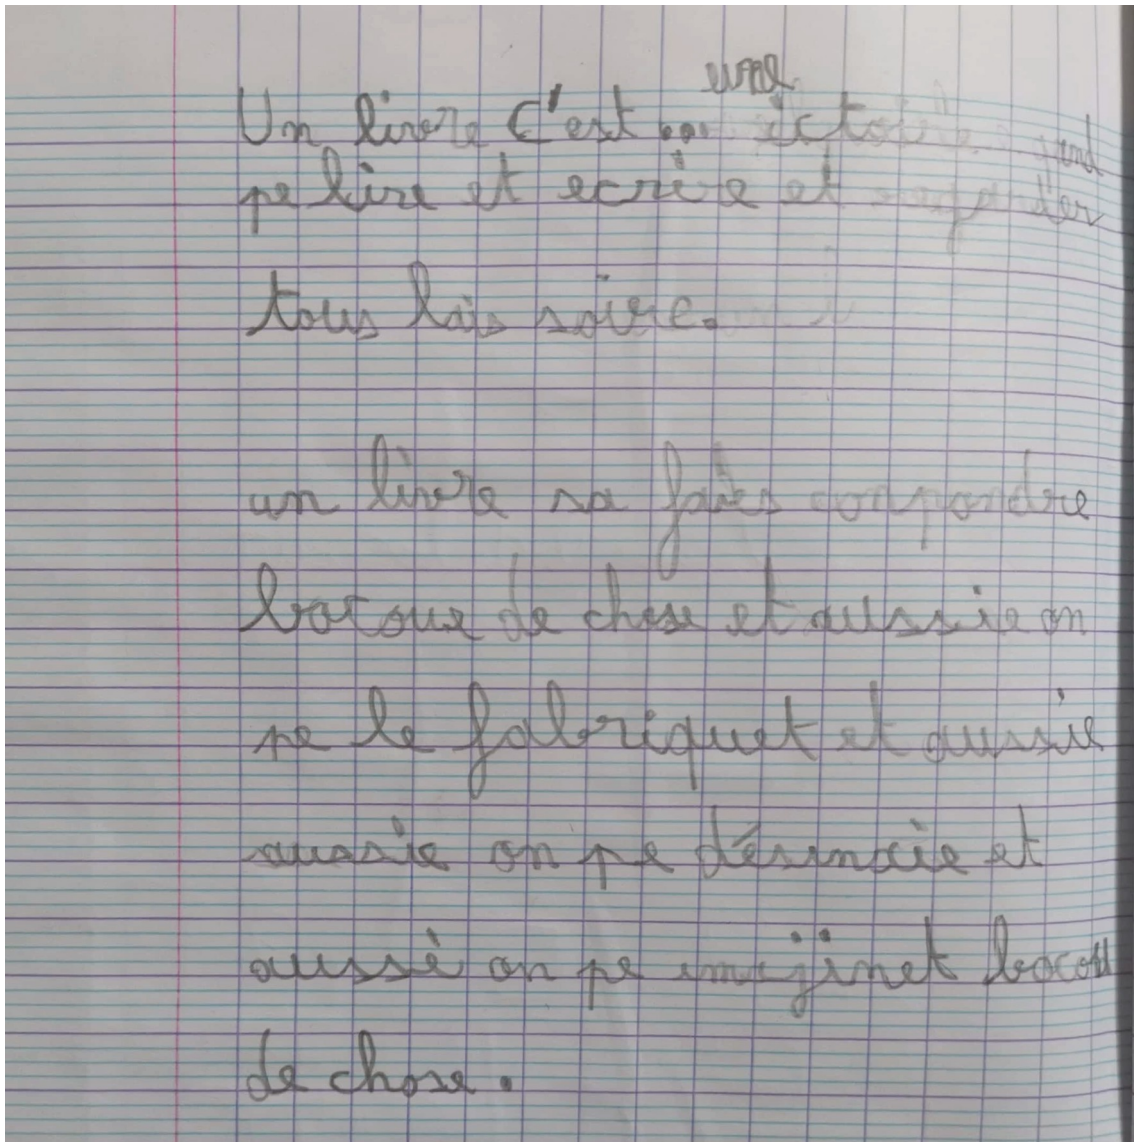 une
Un livre c'est ictoire
pe lire et ecrire et
tous lais soire.
un livre sa faies conpondre
bocoux de chose et aussie on
pe le fabriquet et aussie
aussie on pe désinaie et
aussè on pe imajinet bocou
de chose.